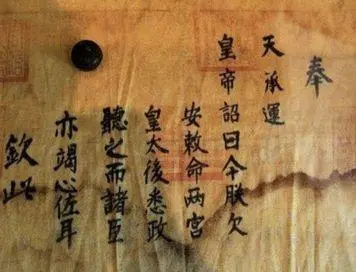 奉
天承運
皇帝詔曰今朕欠
安敕命两宫
皇太後悉政
聽之而諸臣
亦竭心佐耳
欽此